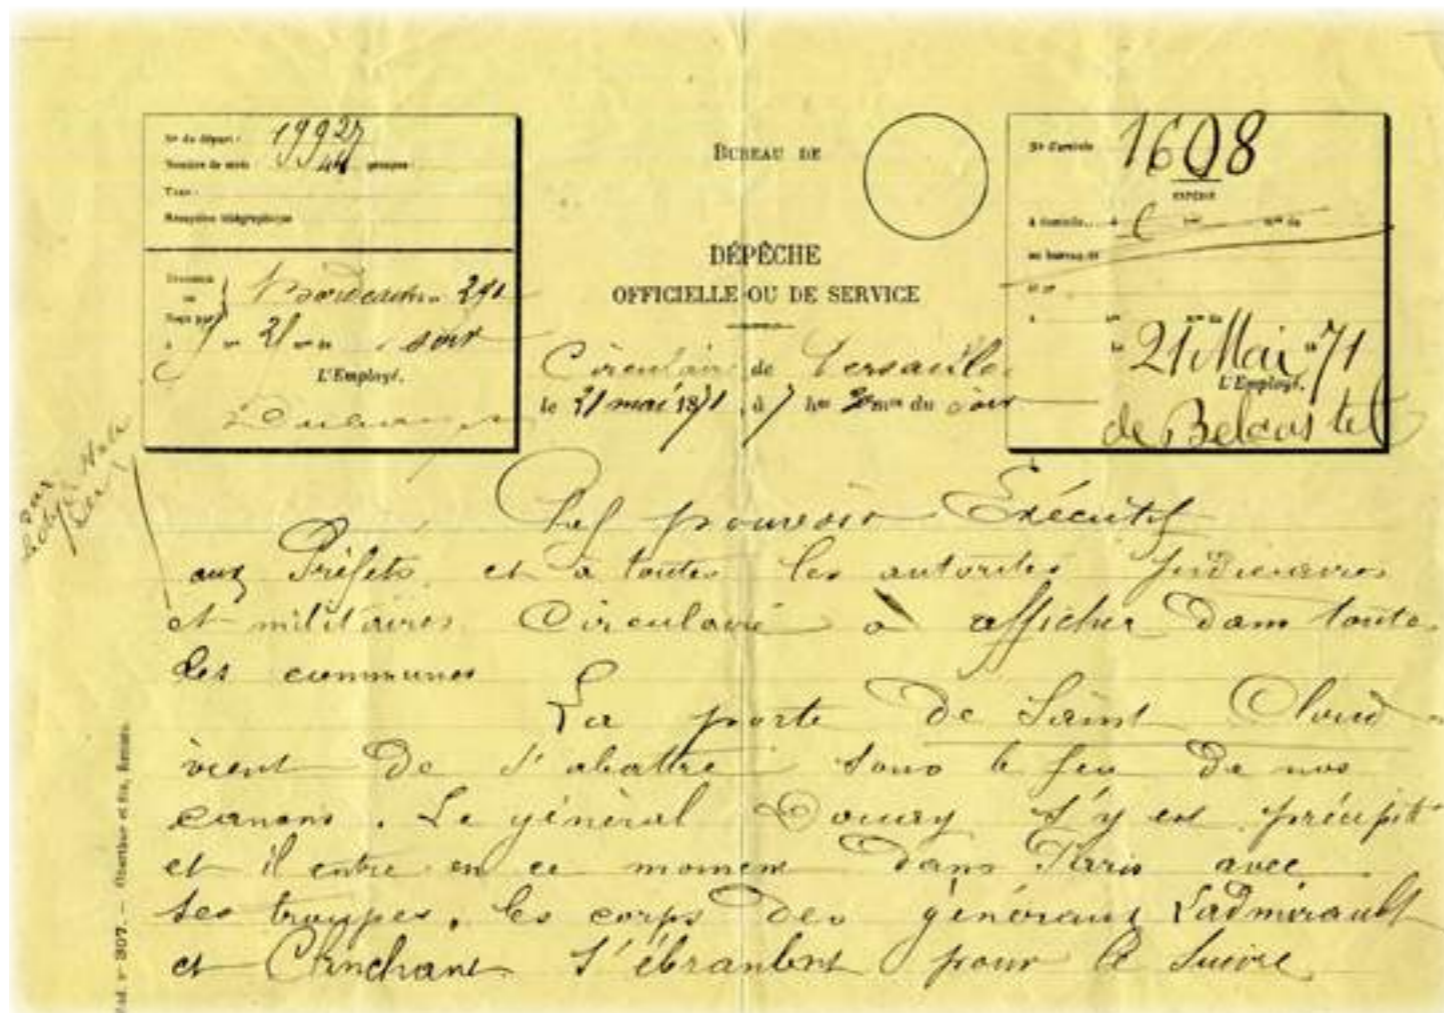 N° du départ : 19927
Nombre de mots 44 groupes
Taxe :
Réception télégraphique
Bordeaux 291
21 soir
L'Employé.
BUREAU DE
DÉPÊCHE
OFFICIELLE OU DE SERVICE
Circulaire de Versailles
le 21 mai 1871, à 7 hes mes du soir
N° d'arrivée 1608
EXPÉDIÉ
A domicile
au bureau d
le 21 Mai 1871
L'Employé.
de Belcastel
Chef pouvoir Exécutif
aux Préfets et à toutes les autorités judiciaires
et militaires Circulaire à afficher dans toute
les communes
La porte de Saint Cloud
vient de s'abattre sous le feu de nos
canons. Le général Douay s'y est précipité
et il entre en ce moment dans Paris avec
ses troupes. les corps des généraux Ladmirault
et Clinchant s'ébranlent pour le suivre
n° 307. — Oberthur et fils, Rennes.